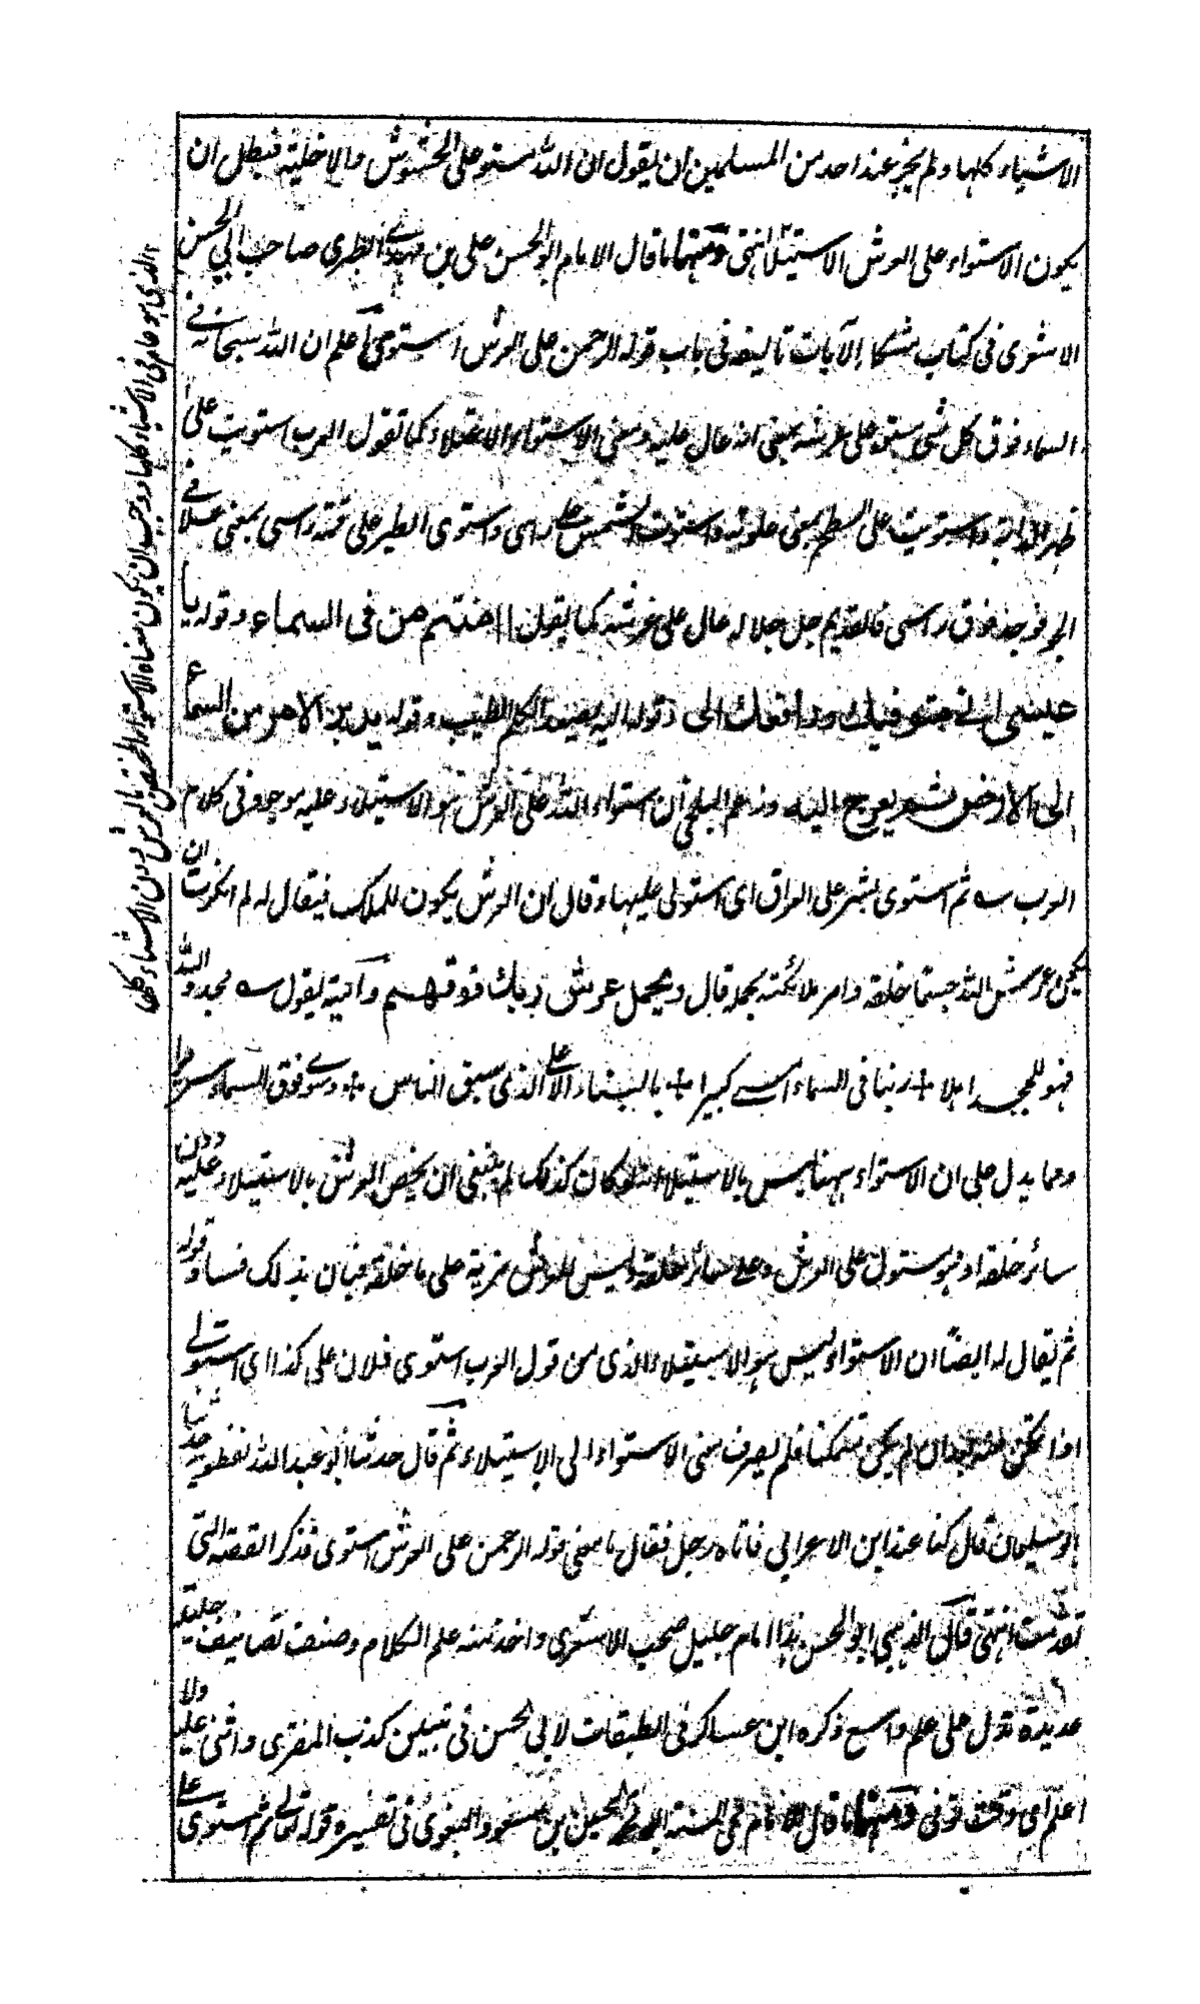 الاشياء كلها ولم يجز عند احد من المسلمين ان يقول ان الله مستو على الحشوش والاخلية فبطل ان
يكون الاستواء على العرش الاستيلاء انتهى ومنها ما قال الامام ابو الحسن على بن مهدي الطبرى صاحب ابي الحسن
الاشعرى فى كتاب مشكل الآيات تاليفه فى باب قوله الرحمن على العرش استوى اعلم ان الله سبحانه فے
السماء فوق كل شى مستو على عرشه بمعنى انه عال عليه ومعنى الاستواء الاعتلاء كما تقول العرب استويت على
ظهر الدابة واستويت على السطح بمعنى علوته واستوت الشمس على راسى واستوى الطير على قمة راسى بمعنى علا فے
الجو فوجد فوق راسى فالقديم جل جلاله عال على عرشه كما يقول ءامنتم من فى السماء وقوله يا
عيسى انے متوفيك ورافعك الى وقوله اليه يصعد الكلم الطيب وقوله يدبر الامر من السماء
الى الارض ثم يعرج اليه وزعم البلخى ان استواء الله على العرش هو الاستيلاء عليه موجود فى كلام
العرب سه ثم استوى بشر على العراق اى استولى عليها وقال ان العرش يكون للملك فيقال له لم انكرت ان
يكون عرش الله جسما خلقه وامر ملائكته بحمله قال ويحمل عرش ربك فوقهم وامية يقول سه مجدوا الله
فهو للمجد اهلا + ربنا فى السماء امسے كبيرا + بالبناء الاعلى الذى سبق الناس + وسوى فوق السماء سريرا
ومما يدل على ان الاستواء ههنا ليس بالاستيلاء انه لو كان كذلك لم ينبغى ان يخص العرش بالاستيلاء عليه دون
سائر خلقه اذ هو مستول على العرش وعلى سائر خلقه وليس للعرش مزية على ما خلقه فبان بذلك فساد قوله
ثم يقال له ايضا ان الاستواء ليس هو الاستيلاء الذى من قول العرب استوى فلان على كذا اى استولے
اذا تمكن منه بعد ان لم يكن متمكنا فلم يصرف معنى الاستواء الى الاستيلاء ثم قال حدثنا ابو عبد الله نفطويه حدثنا
ابو سليمان قال كنا عند ابن الاعرابي فاتاه رجل فقال ما معنى قوله الرحمن على العرش استوى فذكر القصة التى
تقدمت انتهى قال الذهبي ابو الحسن هذا امام جليل صحب الاشعرى واخذ عنه علم الكلام وصنف تصانيف جليلة
عديدة تدل على علم واسع ذكره ابن عساكر فى الطبقات لابي الحسن فى تبيين كذب المفترى واثنى عليه ولا
اعلم اى وقت توفى ومنها ما قال الامام محى السنة ابو محمد الحسين بن مسعود البغوى فى تفسيره قوله تعالى ثم استوى علے
الذى هو عام فى الاشياء كلها ووجب ان يكون معناه الاستواء المختص بالعرش دون الاشياء كلها